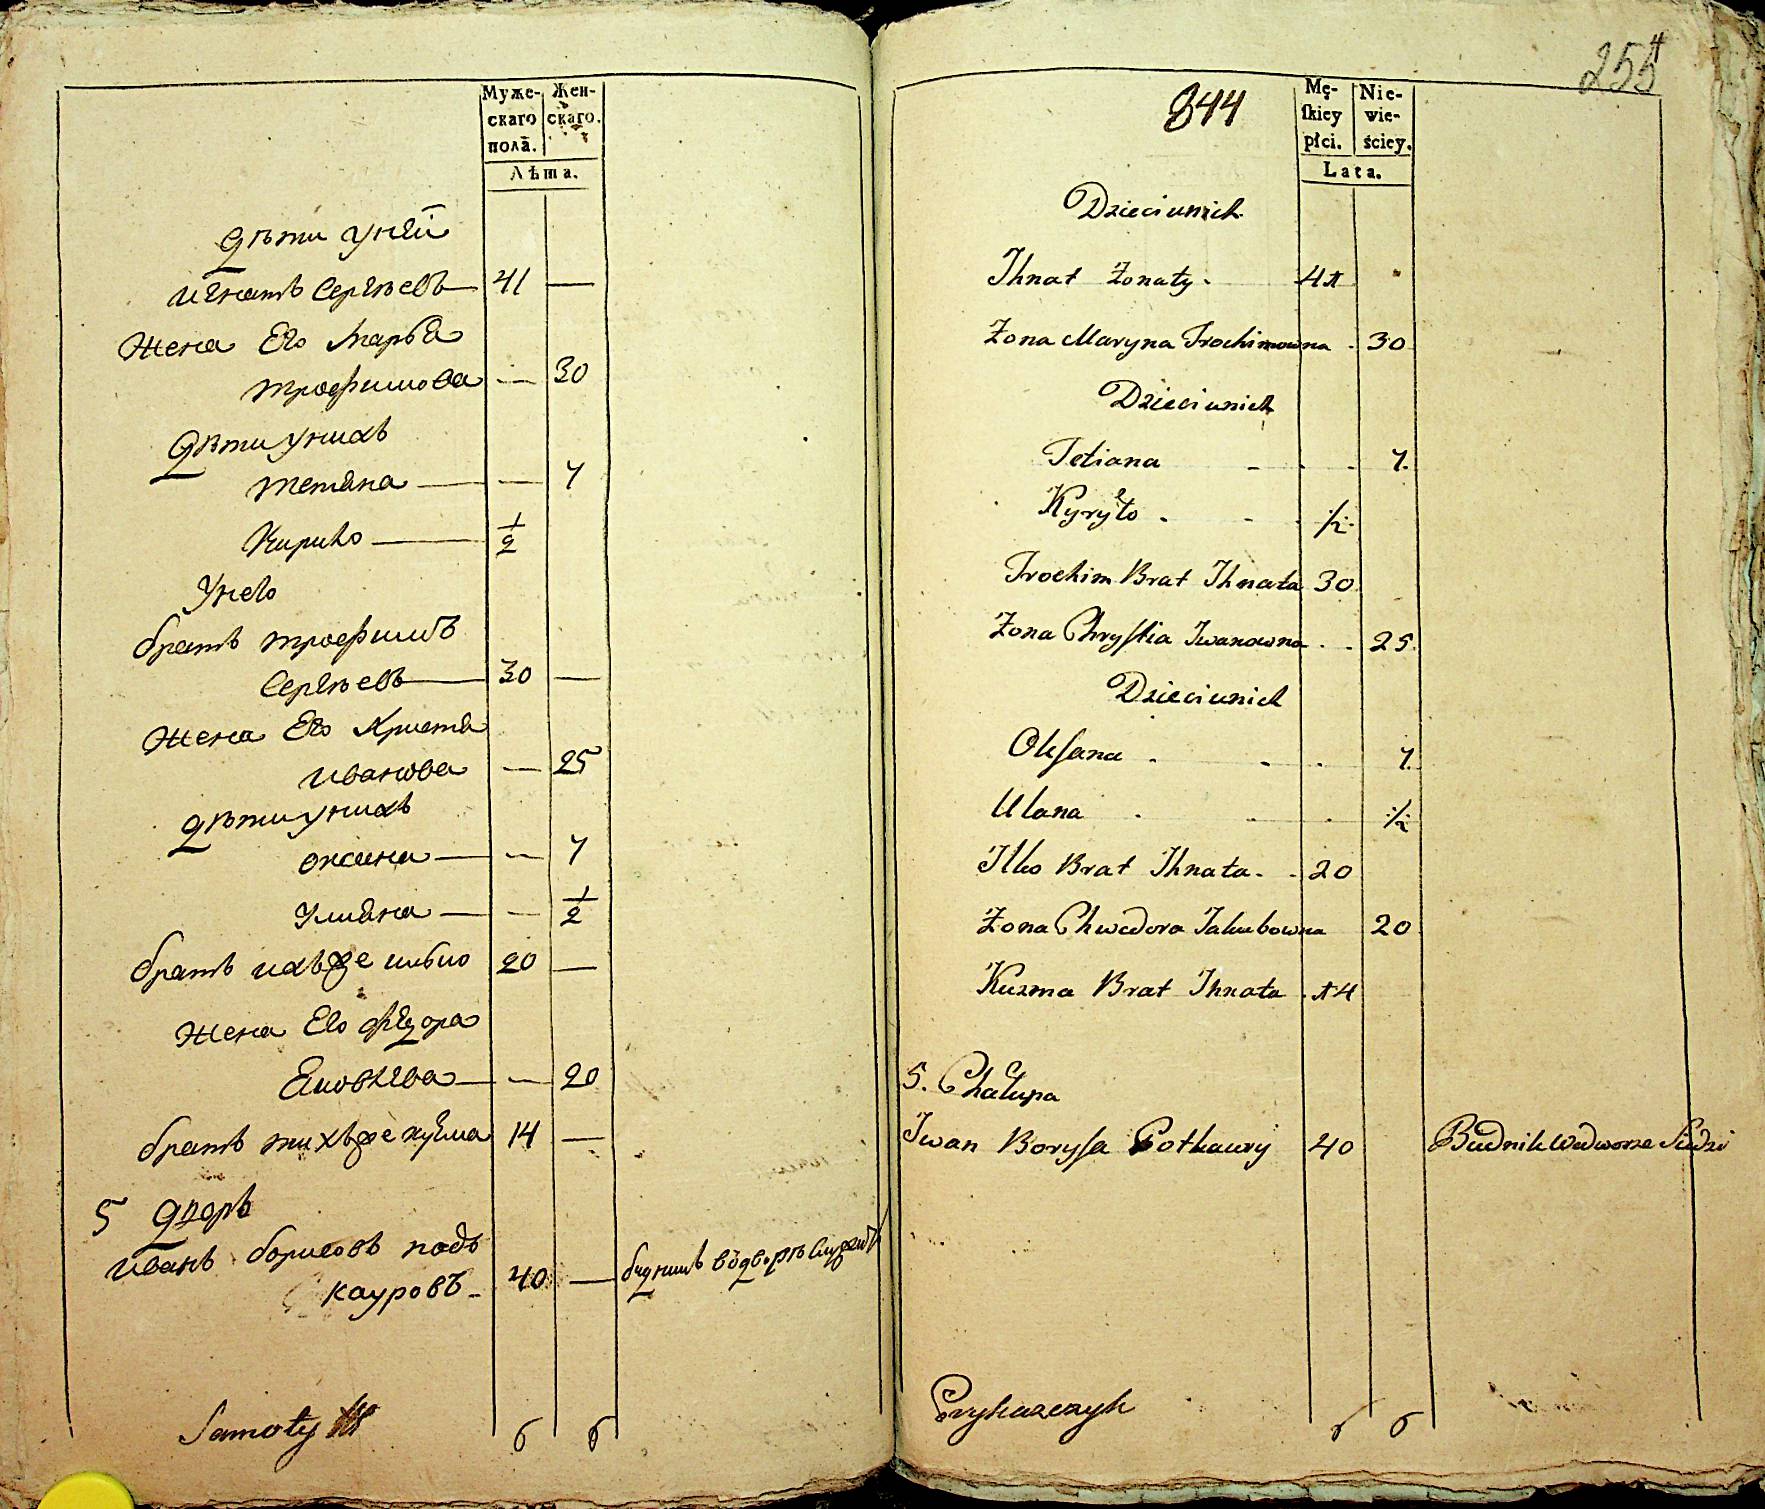 Муже-
скаго
пола.
Жен-
скаго.
Лѣта.
дѣти уней
игнатъ Сергѣевъ 41 —
жена Его Марья
трофимова — 30
дѣти унихъ
тетяна — 7
Кирило 1/2
унево
братъ трофимъ
Сергѣевъ 30 —
жена Его Христя
иванова — 25
дѣти унихъ
оксина — 7
улияна — 1/2
братъ ихъже илько 20 —
жена Ево федора
Яковлева — 20
братъ тихъже кузма 14 —
5 дворъ
иванъ борисовъ подъ
кауровъ 40 — будникъ вдворѣ
Samoty 6 6
255
4
844
Mę-
ſkiey
płci.
Nie-
wie-
ściey.
Lata.
Dzieci unich
Ihnat Żonaty 41
Żona Maryna Trochimowna 30
Dzieci unich
Tetiana 7
Kyryło 1/2
Trochim Brat Ihnata 30
Żona Chryſtia Iwanowna 25
Dzieci unich
Okſana 7
Ulana 1/2
Ilko Brat Ihnata 20
Żona Chwedora Jakubowna 20
Kuzma Brat Ihnata 14
5. Chałupa
Iwan Boryſa Potkaury 40 Budnik Wedworze
Prykazczyk 6 6